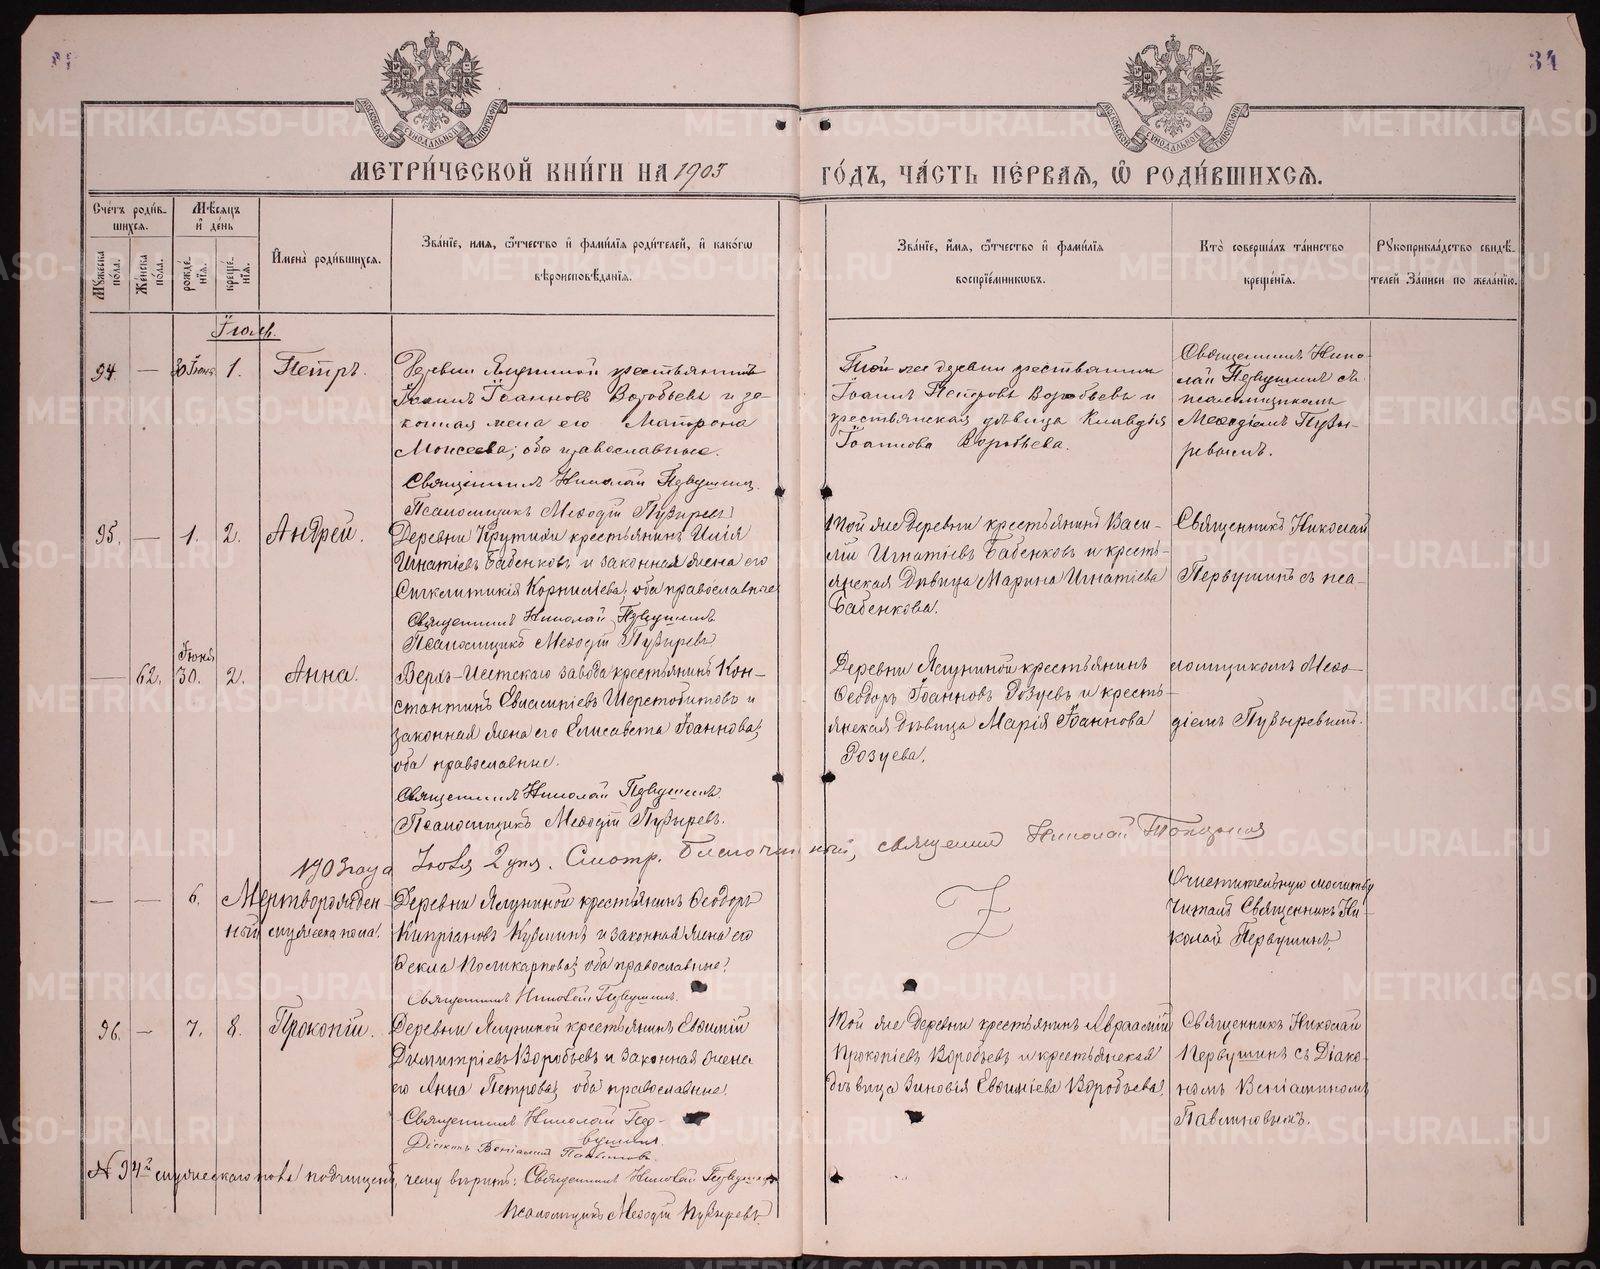 34
МЕТРИ́ЧЕСКОЙ КНИ́ГИ НА 1903 ГО́ДЪ, ЧА́СТЬ ПЕ́РВАѦ, Ѡ РОДИ́ВШИХСѦ.
Счетъ роди́вшихсѧ.
Мѣсяцъ и день
Мꙋжеска пола.
Же́нска по́ла.
рожде́нїѧ.
креще́нїѧ.
Имена̀ роди́вшихсѧ.
Зва́нїе, имѧ, ѻтчество и фами́лїѧ роди́телей, и како́гѡ вѣроисповѣ́данїѧ.
Зва́нїе, и́мѧ, ѻтчество и фами́лїѧ воспрїе́мниковъ.
Кто̀ соверша́лъ та́инство креще́нїѧ.
Рꙋкоприкла́дство свидѣ́телей за́писи по жела́нїю.
Іюль.
94. — 30 Іюня 1. Петръ.
Деревни Ялуниной крестьянинъ
Іоаннъ Іоанновъ Воробьевъ и за-
конная жена его Матрона
Моисеева; оба православные.
Священникъ Николай Первушинъ.
Псаломщикъ Меѳодій Пузыревъ.
Той же деревни крестьянинъ
Іоаннъ Петровъ Воробьевъ и
крестьянская дѣвица Клавдія
Іоаннова Воробьева.
Священникъ Нико-
лай Первушинъ съ
псаломщикомъ
Меѳодіемъ Пузы-
ревымъ.
95. — 1. 2. Андрей.
Деревни Крутихи крестьянинъ Илія
Игнатіевъ Бабенковъ и законная жена его
Сигклитикія Корниліева; оба православные
Священникъ Николай Первушинъ
Псаломщикъ Меѳодій Пузыревъ
Той же деревни крестьянинъ Васи-
лій Игнатіевъ Бабенковъ и кресть-
янская дѣвица Марина Игнатіева
Бабенкова.
Священникъ Николай
Первушинъ съ пса-
— 62. Іюня 30. 2. Анна.
Верхъ-Исетскаго завода крестьянинъ Кон-
стантинъ Евлампіевъ Шерстобитовъ и
законная жена его Елисавета Іоаннова;
оба православные.
Священникъ Николай Первушинъ
Псаломщикъ Меѳодій Пузыревъ.
Деревни Ялуниной крестьянинъ
Ѳеодоръ Іоанновъ Розуевъ и кресть-
янская дѣвица Марія Іоаннова
Розуева.
ломщикомъ Меѳо-
діемъ Пузыревымъ.
1903 года Іюля 2 дня. Смотр. Благочинный, священникъ Николай
— — 6. Мертворожден-
ный мужеска пола.
Деревни Ялуниной крестьянинъ Ѳеодоръ
Кипріановъ Кузминъ и законная жена его
Ѳекла Поликарпова; оба православные.
Священникъ Николай Первушинъ.
Z
Очистительную молитву
читалъ Священникъ Ни-
колай Первушинъ
96. — 7. 8. Прокопій.
Деревни Ялуниной крестьянинъ Евѳимій
Димитріевъ Воробьевъ и законная жена
его Анна Петрова; оба православные.
Священникъ Николай Пер-
вушинъ.
Діаконъ Веніаминъ Павлиновъ.
Той же деревни крестьянинъ Авраамій
Прокопіевъ Воробьевъ и крестьянская
дѣвица Зиновія Евѳиміева Воробьева.
Священникъ Николай
Первушинъ съ Діако-
номъ Веніаминомъ
Павлиновымъ.
№ 94й мужескаго пола подчищенъ, чему вѣрить: Священникъ Николай Первушинъ
Псаломщикъ Меѳодій Пузыревъ
METRIKI.GASO-URAL.RU